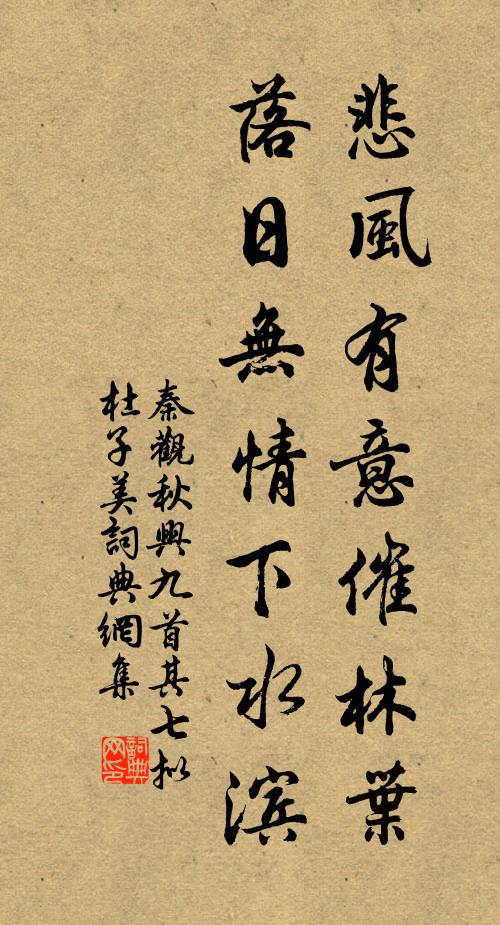 悲風有意催林葉
落日無情下水濱
秦觀秋興九首其七拟
杜子美詞典網集
詞典网印